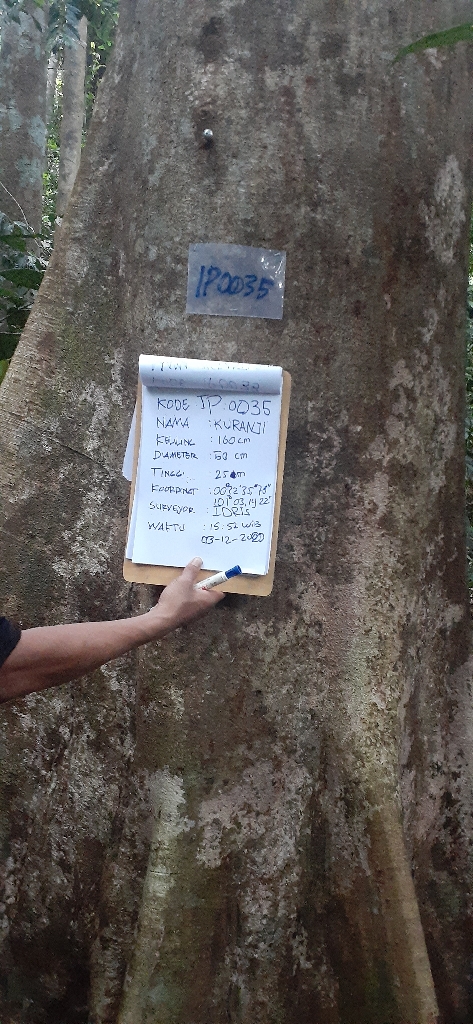 IP0035
KODE IP :0035
NAMA : KURANJI
KELILING : 160 cm
DIAMETER : 50 cm
TINGGI : 25 m
KOORDINAT : 00°12'35"78"
101°03,1422"
SURVEYOR : IDRIS
WAKTU : 15:52 WIB
03-12-2020